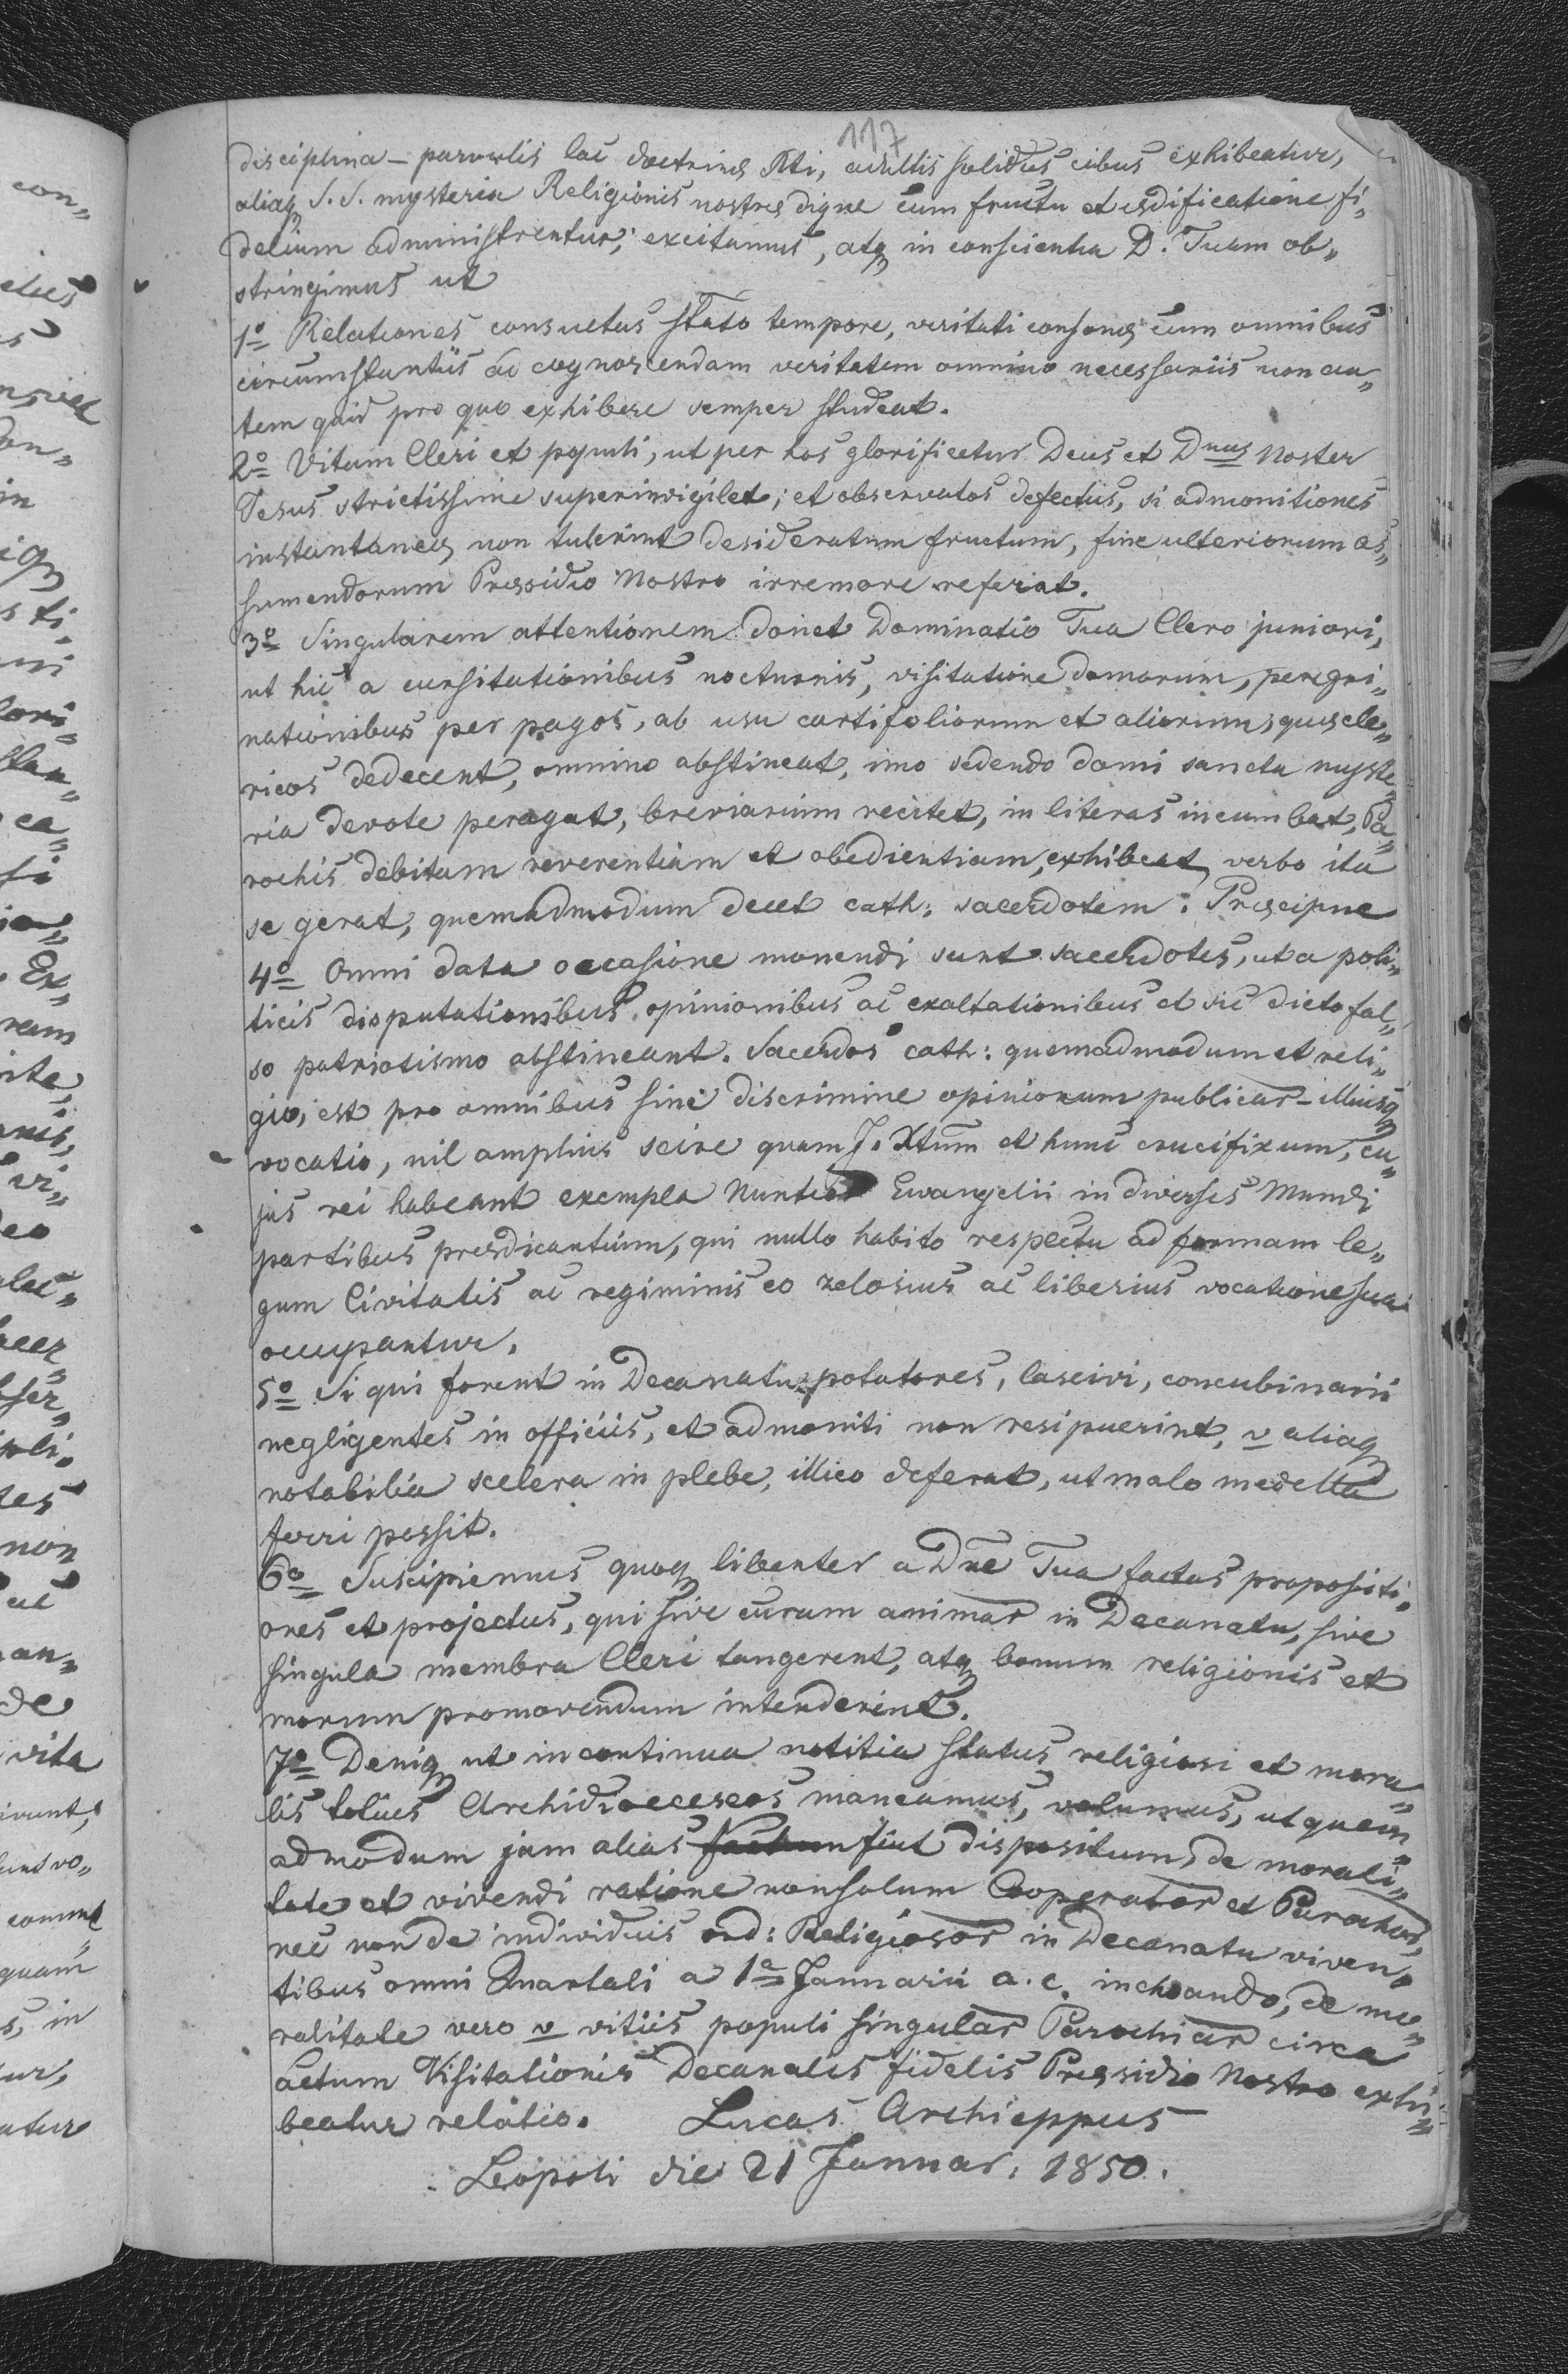 117
disciplina – parvulis lac doctrinæ Xti, adultis solidus cibus exhibeatur,
aliaq S. S. mysteria Religionis nostræ digne cum fructu et ædificatione fi„
delium administrentur; excitamus, atq in conscientia D. Tuam ob„
stringimus ut
1º Relationes consuetas stato tempore, veritati consonas cum omnibus
circumstantiis ad cognoscendam veritatem omnino necessariis non au„
tem quid pro quo exhibere semper studeat.
2º Vitam Cleri et populi, ut per hos glorificetur Deus et Dnus Noster
Jesus strictissime superinvigilet; et observatos defectus, si admonitiones
instantaneæ non tulerint desideratum fructum, fine ulteriorum as„
sumendorum Præsidio Nostro irremore referat.
3º Singularem attentionem donet Dominatio Tua Clero juniori,
ut hic a cursitationibus nocturnis, visitatione domorum, peregri„
nationibus per pagos, ab usu cartifoliorum et aliorum, quæ cle„
ricos dedecent, omnino abstineat, imo sedendo domi sancta myste„
ria devote peragat, breviarium recitet, in literas incumbat, Pa„
rochis debitam reverentiam et obedientiam exhibeat, verbo ita
se gerat, quemadmodum decet cath: sacerdotem. Præcipue
4º Omni data occasione monendi sunt sacerdotes, ut a poli„
ticis disputationibus, opinionibus ac exaltationibus et sic dicto fal„
so patriotismo abstineant. Sacerdos cath: quemadmodum et reli„
gio, est pro omnibus sine discrimine opinionum publicar – illiusq
vocatio, nil amplius scire quam J. Xtum et hunc crucifixum, cu„
jus rei habeant exempla Nuntior Ewangelii in diversis Mundi
partibus prædicantium, qui nullo habito respectu ad formam le„
gum Civitatis ac regiminis eo zelosius ac liberius vocatione sua
occupantur.
5º Si qui forent in Decanatu potatores, lascivi, concubinarii
negligentes in officiis, et admoniti non resipuerint, v aliaq
notabilia scelera in plebe, illico deferat, ut malo medella
ferri possit.
6º Suscipiemus quoq libenter a Dne Tua factas propositi„
ones et projectus, qui sive curam animar in Decanatu, sive
singula membra Cleri tangerent, atq bonum religionis et
morum promovendum intenderint.
7º Deniq ut in continua notitia status religiosi et mora„
lis totius Archidioeceseos maneamus, volumus, ut quem„
admodum jam alias factum fuit dispositum, de morali„
tate et vivendi ratione non solum Cooperator et Parochor,
nec non de individuis ord: Religiosor in Decanatu viven„
tibus omni Quartali a 1a Januarii a. c. inchoando, de mo„
ralitate vero v vitiis populi singular Parochiar circa
actum Visitationis Decanalis fidelis Præsidio Nostro exhi„
beatur relatio. Lucas Archieppus
Leopoli die 21 Januar. 1850.